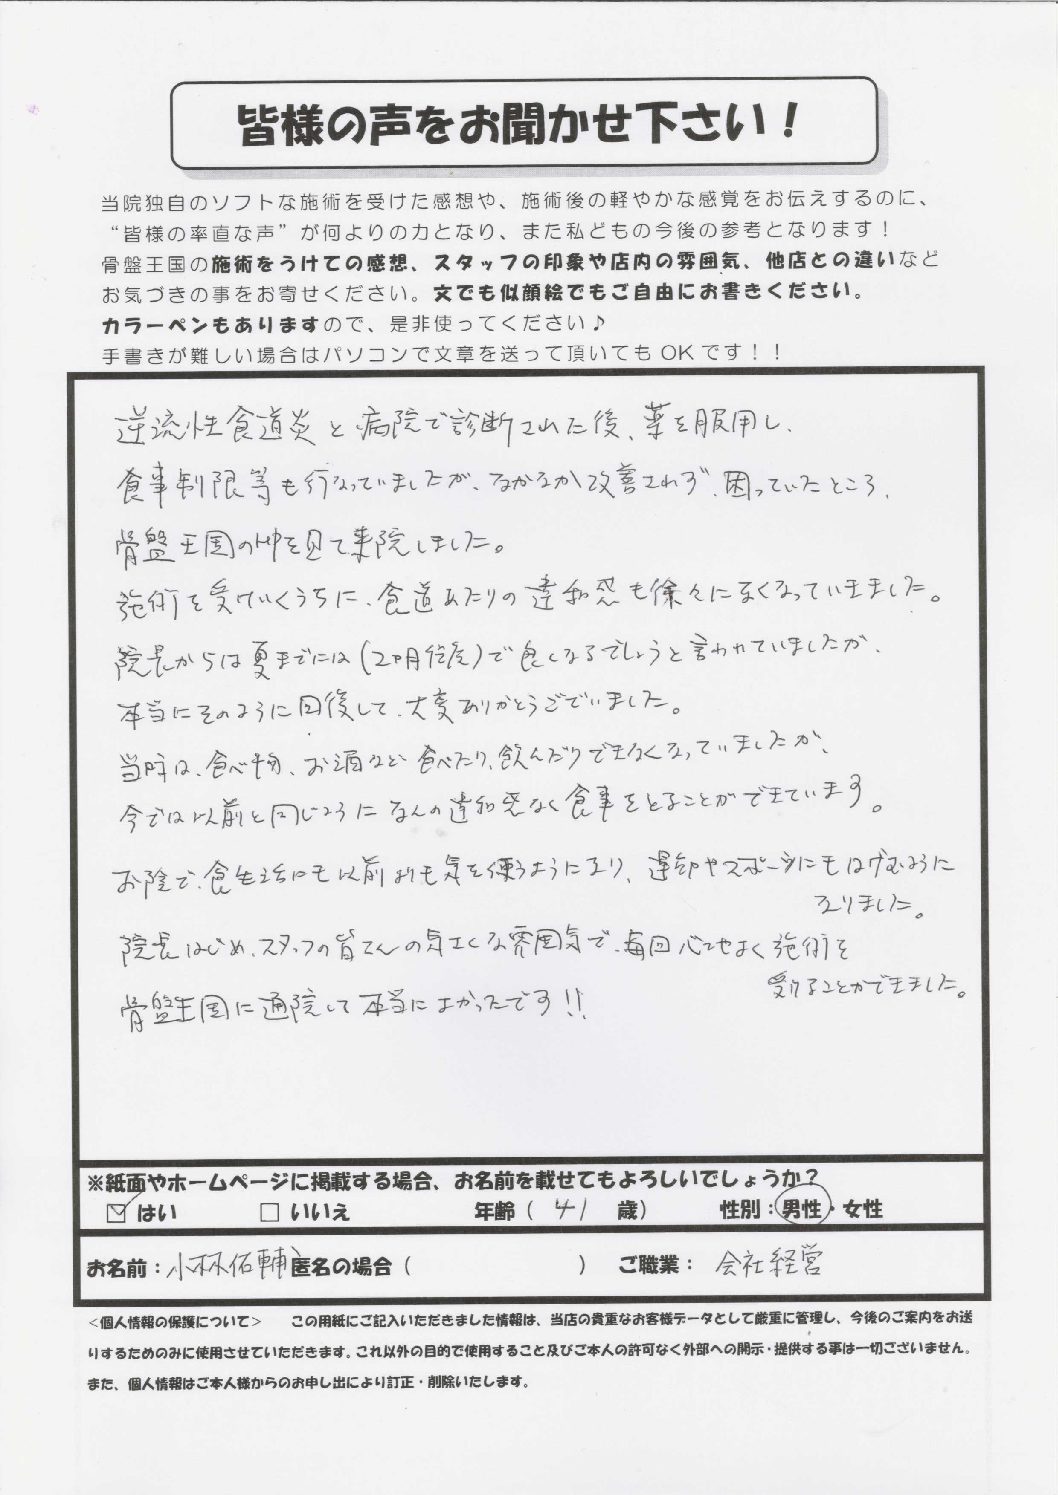 皆様の声をお聞かせ下さい！
当院独自のソフトな施術を受けた感想や、施術後の軽やかな感覚をお伝えするのに、
“皆様の率直な声”が何よりの力となり、また私どもの今後の参考となります！
骨盤王国の施術をうけての感想、スタッフの印象や店内の雰囲気、他店との違いなど
お気づきの事をお寄せください。文でも似顔絵でもご自由にお書きください。
カラーペンもありますので、是非使ってください♪
手書きが難しい場合はパソコンで文章を送って頂いてもOKです！！
逆流性食道炎と病院で診断された後、薬を服用し、
食事制限等も行なっていましたが、なかなか改善されず、困っていたところ、
骨盤王国のHPを見て来院しました。
施術を受けていくうちに、食道あたりの違和感も徐々になくなっていきました。
院長からは夏までには(2ヶ月程度)で良くなるでしょうと言われていましたが、
本当にそのように回復して、大変ありがとうございました。
当時は、食べ物、お酒など食べたり、飲んだりできなくなっていましたが、
今では以前と同じようになんの違和感なく食事をとることができています。
お陰で、食生活にも以前よりも気を使うようになり、運動やスポーツにもはげむように
なりました。
院長はじめ、スタッフの皆さんの気さくな雰囲気で、毎回心地よく施術を
受けることができました。
骨盤王国に通院して本当によかったです!!
※紙面やホームページに掲載する場合、お名前を載せてもよろしいでしょうか？
☑はい　□いいえ　年齢（ 41 歳）　性別：男性・女性
お名前：小林佑輔 匿名の場合（　　）　ご職業： 会社経営
＜個人情報の保護について＞　この用紙にご記入いただきました情報は、当店の貴重なお客様データとして厳重に管理し、今後のご案内をお送
りするためのみに使用させていただきます。これ以外の目的で使用すること及びご本人の許可なく外部への開示・提供する事は一切ございません。
また、個人情報はご本人様からのお申し出により訂正・削除いたします。